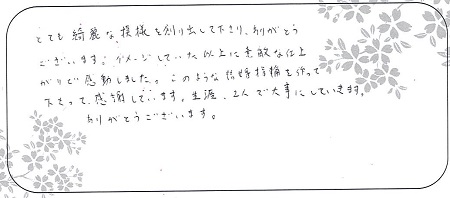 とても綺麗な模様を創り出して下さり、ありがとう
ございます。イメージしていた以上に素敵な仕上
がりで感動しました。このような結婚指輪を作って
下さって、感謝しています。生涯、2人で大事にしていきます。
ありがとうございます。